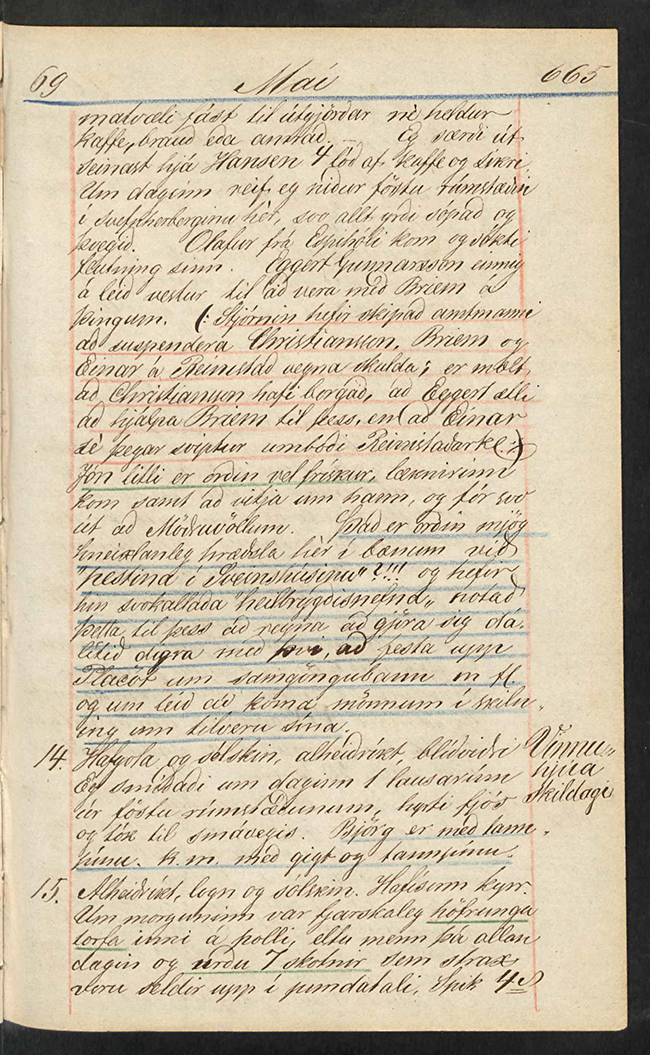 69 Maí 665
matvæli fást til útgjörðar nè heldur
kaffe, braud eda annad. Eg værdi út
seinast hjá Hansen 4 lód af kaffe og sikri
Um daginn reif eg nidur föstu rúmstædin
i svefnherberginu hèr, svo allt yrdi sópad og
þvegid. Olafur frá Espihóli kom og sókti
flutning sinn. Eggert Gunnarsson einnig
á leid vestur til ad vera med Briem á
þingum. (: Stjórnin hefir skipad amtmanni
ad suspendera Christiansson, Briem og
Einar á Reinistad vegna skulda; er mælt
ad Christiansson hafi borgad, ad Eggert ætli
ad hjálpa Briem til þess, en ad Einar
sé þegar sviptur umbodi Reinistadarkl. :)
Jón litli er ordin vel frískur, læknirinn
kom samt ad vitja um hann, og fór svo
út ad Mödruvöllum. Þad er ordin mjög
hneixlanleg hrædsla hèr i bænum vid
"pestina i Sveinshúsinu"?!!! og hefir
hin svokallada "heilbrygdisnefnd" notad
þetta til þess ad reyna ad gjöra sig dá-
litid digra med því, ad festa upp
Placöt um samgöngubann m fl
og um leid ad koma mönnum i skiln-
ing um tilveru sína.
14. Hafgola og sólskin, alheidríkt, blídvidri
Vinnu-
hjúa
Skildagi
Eg smídadi um daginn 1 lausarúm
úr föstu rúmstædunum, hyrti fjós
og tók til smávegis. Björg er med tann-
pínu. K. m. med gigt og tannpínu.
15. Alheidríkt, logn og sólskin. Hafísinn kyrr.
Um morguninn var fjarskaleg höfrunga
torfa inni á polli, eltu menn þá allan
dagin og urdu 7 skotnir sem strax
voru seldir upp i pundatali, Spik 4